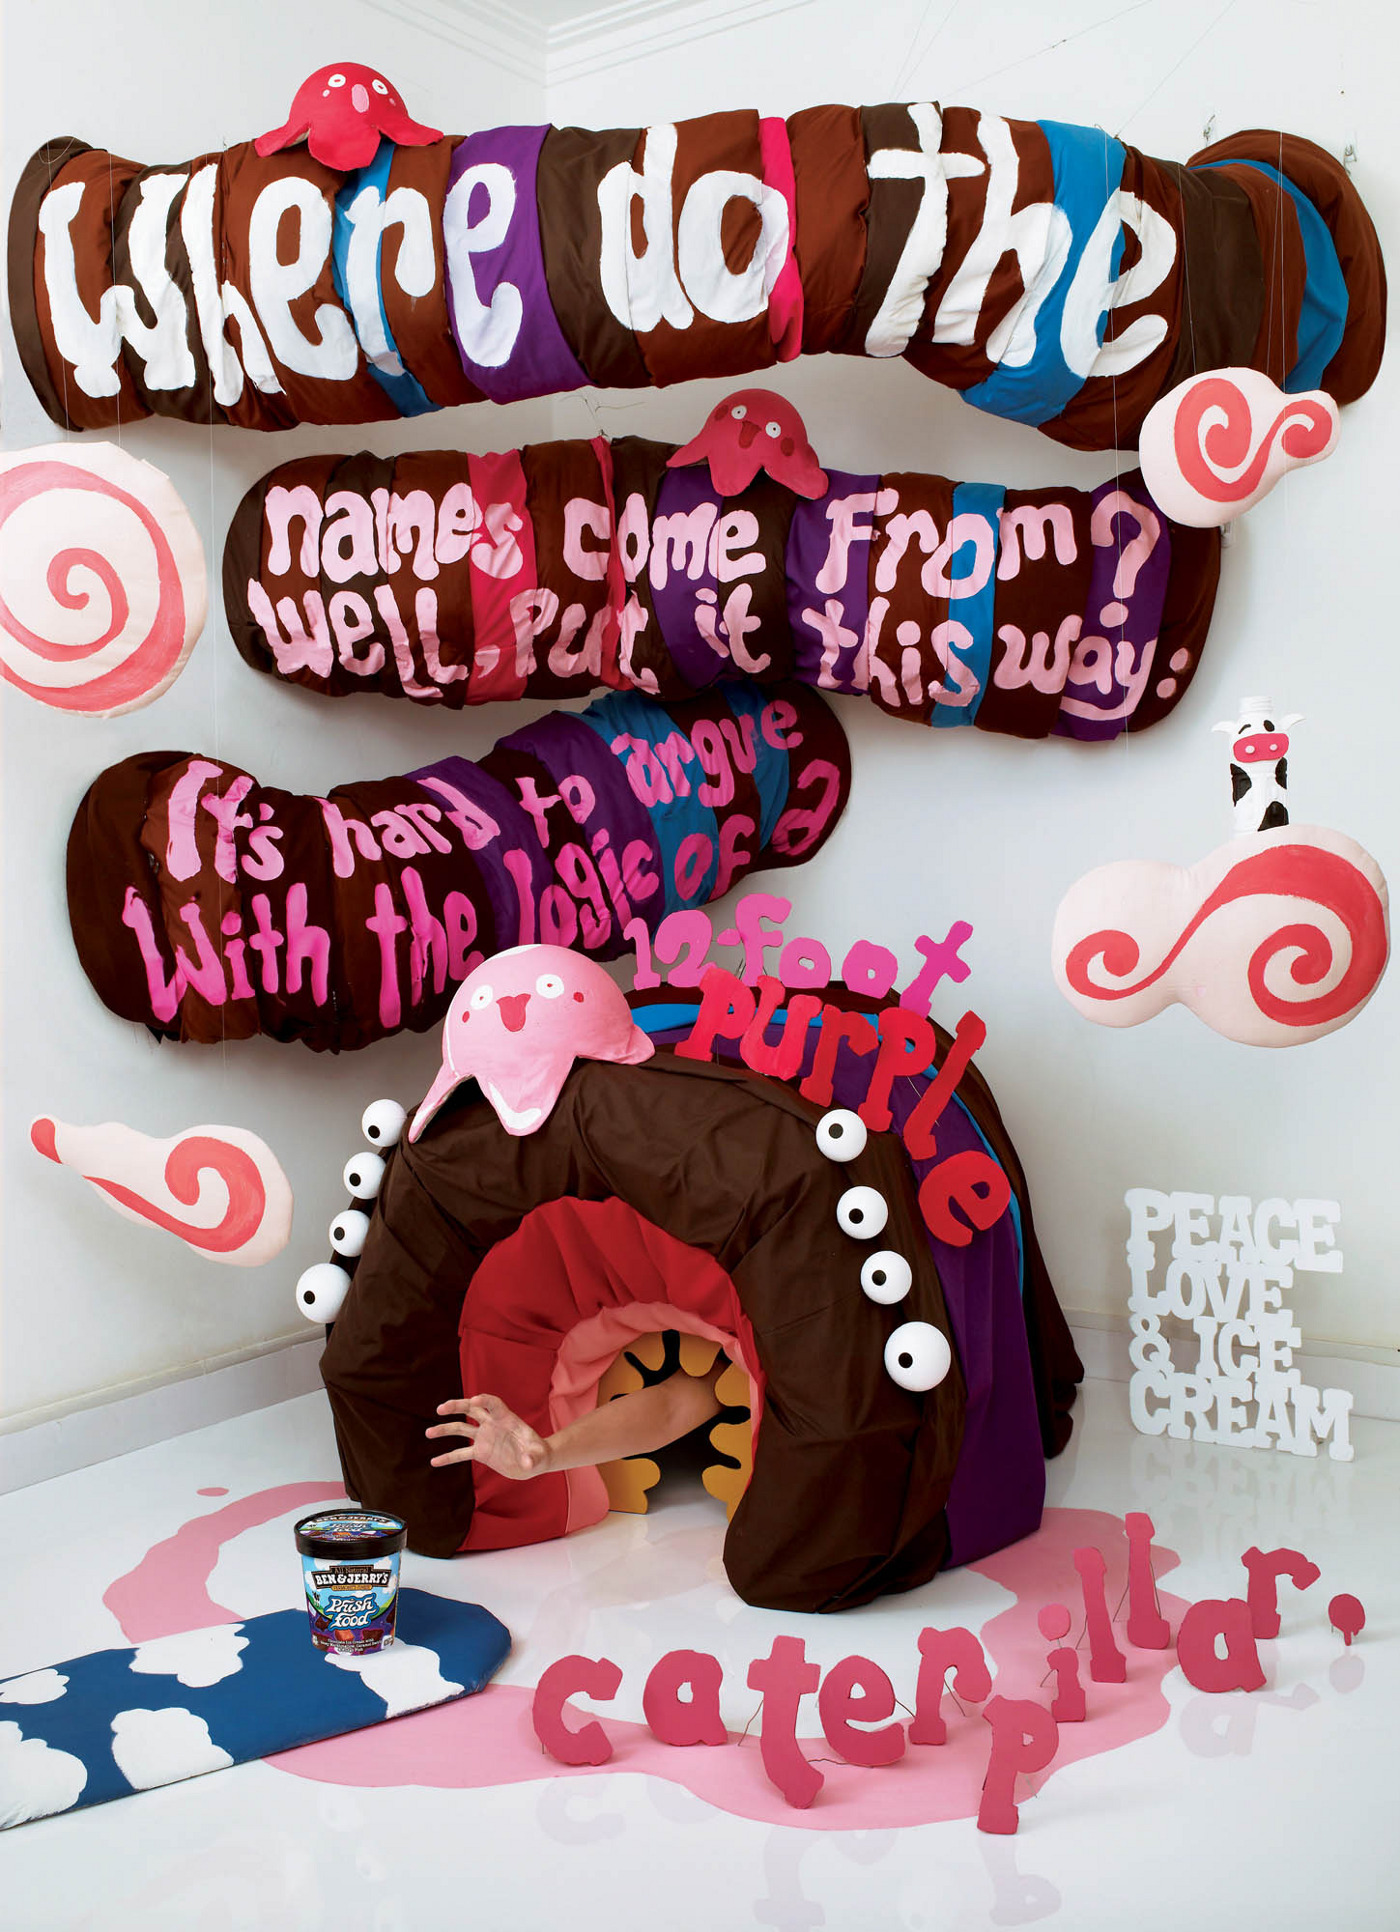 Where do the
names come From?
Well, put it this way:
It's hard to argue
With the logic of a
12-foot
purple
caterpillar.
PEACE
LOVE
& ICE
CREAM
BEN & JERRY'S
Phish
Food
All Natural
BEN & JERRY'S
Phish
Food